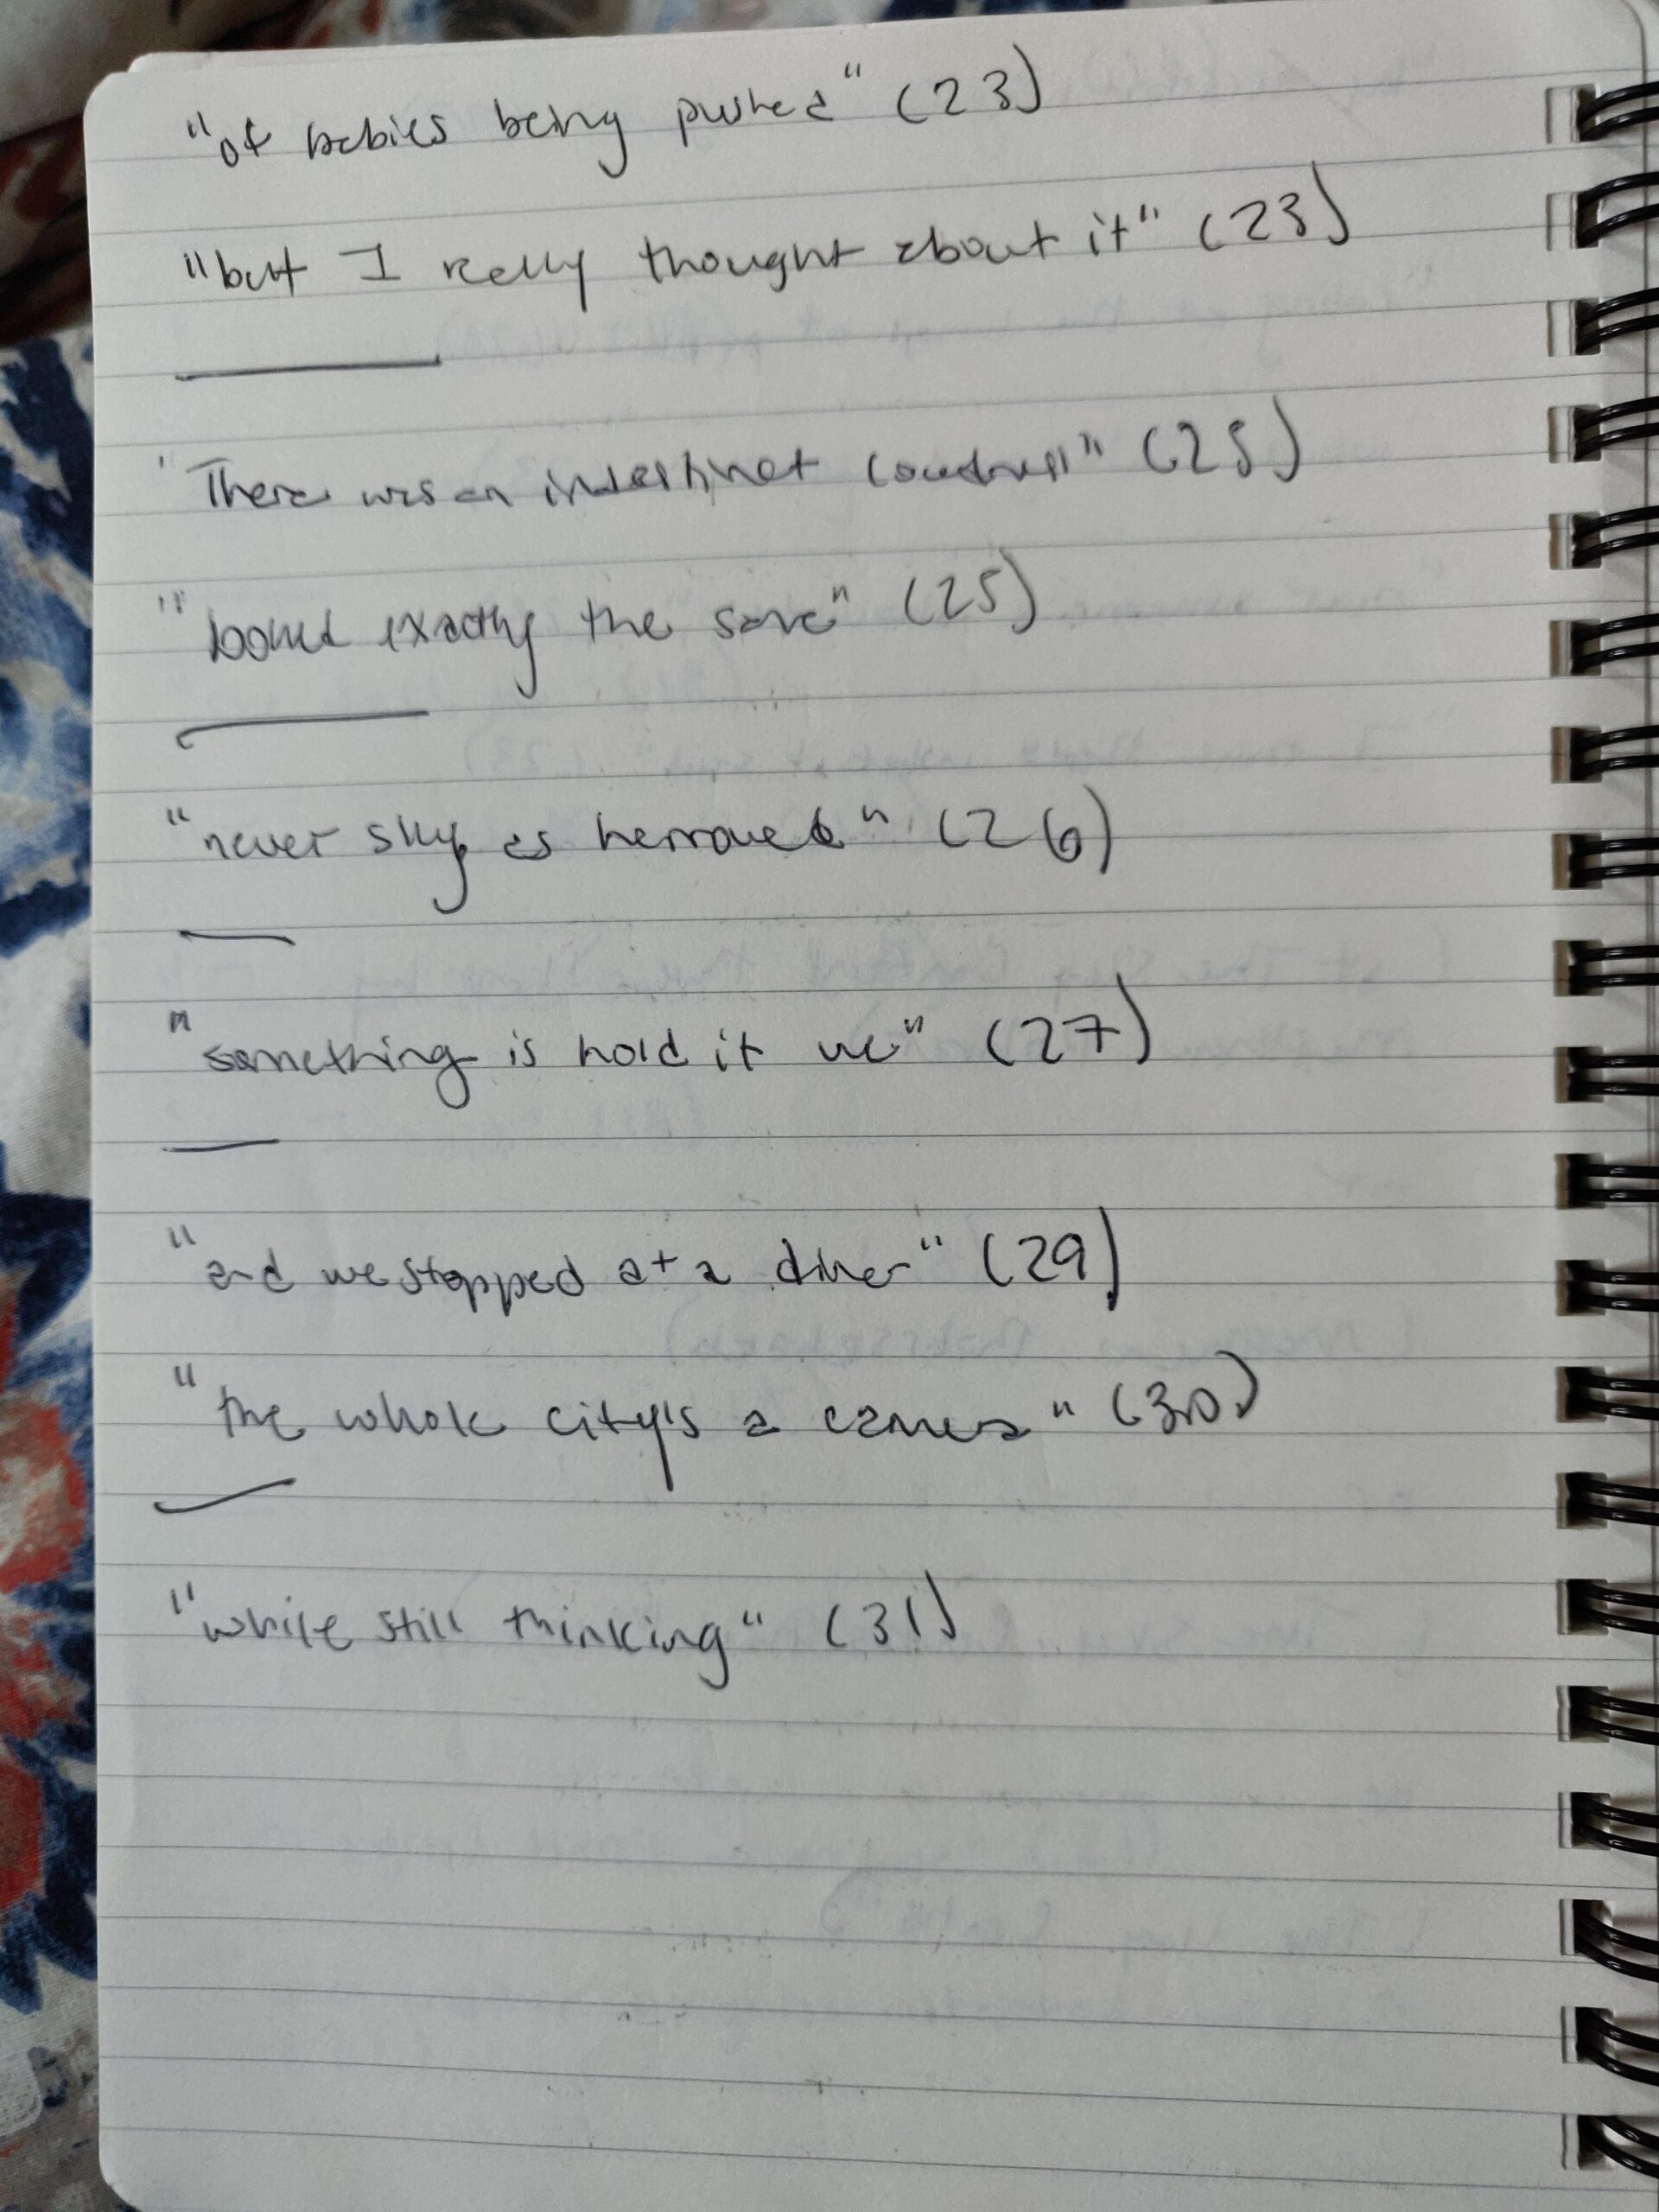 "of babies being pushed" (23)
"but I really thought about it" (23)
"There was an indistinct" (25)
"looked exactly the same" (25)
"never sky as" (26)
"something is hold it" (27)
"and we stopped at a diner" (29)
"the whole city's a camera" (30)
"while still thinking" (31)